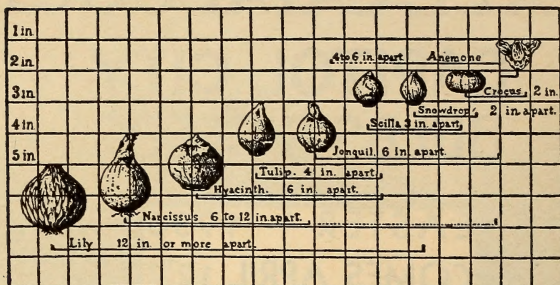 1 in
2 in
4 to 6 in apart Anemone
3 in
Crocus, 2 in.
Snowdrop, 2 in. apart.
4 in
Scilla 3 in. apart.
5 in
Jonquil. 6 in. apart.
Tulip. 4 in. apart.
Hyacinth. 6 in. apart.
Narcissus 6 to 12 in. apart.
Lily 12 in. or more apart.